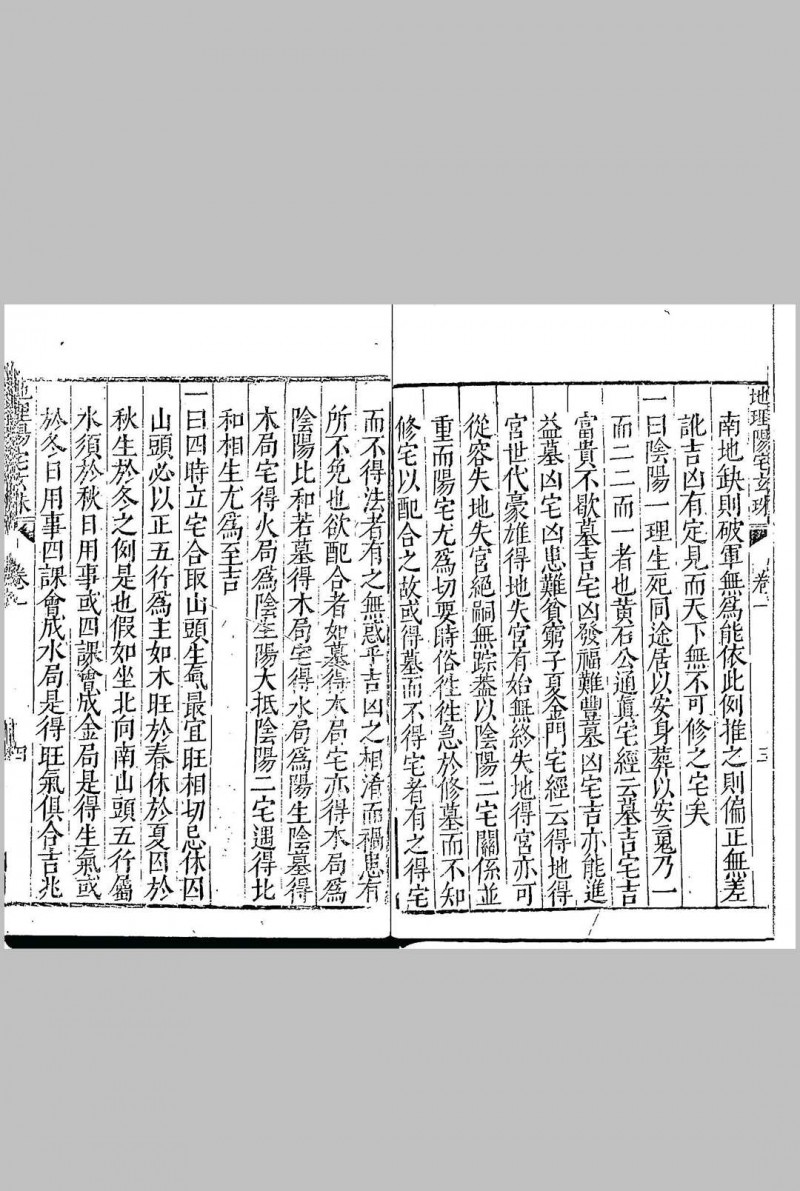 地理陽宅玄珠 卷一 三
南地缺則破軍無爲能依此例推之則偏正無差
訛吉凶有定見而天下無不可修之宅矣
一曰陰陽一理生死同途居以安身葬以安䰟乃一
而二二而一者也黄石公通眞宅經云墓吉宅吉
富貴不歇墓吉宅凶發福難豐墓凶宅吉亦能進
益墓凶宅凶患難貧窮子夏金門宅經云得地得
宮世代豪雄得地失宮有始無終失地得宮亦可
從容失地失宮絕嗣無踪葢以陰陽二宅關係並
重而陽宅尤爲切要時俗徃徃急於修墓而不知
修宅以配合之故或得墓而不得宅者有之得宅
而不得法者有之無惑乎吉凶之相淆而禍患有
所不免也欲配合者如墓得木局宅亦得木局爲
陰陽比和若墓得木局宅得水局爲陽生陰墓得
木局宅得火局爲陰生陽大抵陰陽二宅遇得比
和相生尤爲至吉
一曰四時立宅合取山頭生氣最宜旺相切忌休囚
山頭必以正五行爲主如木旺於春休於夏囚於
秋生於冬之例是也假如坐北向南山頭五行屬
水須於秋日用事或四課會成金局是得生氣或
於冬日用事四課會成水局是得旺氣俱合吉兆
地理陽宅玄珠 卷一 四